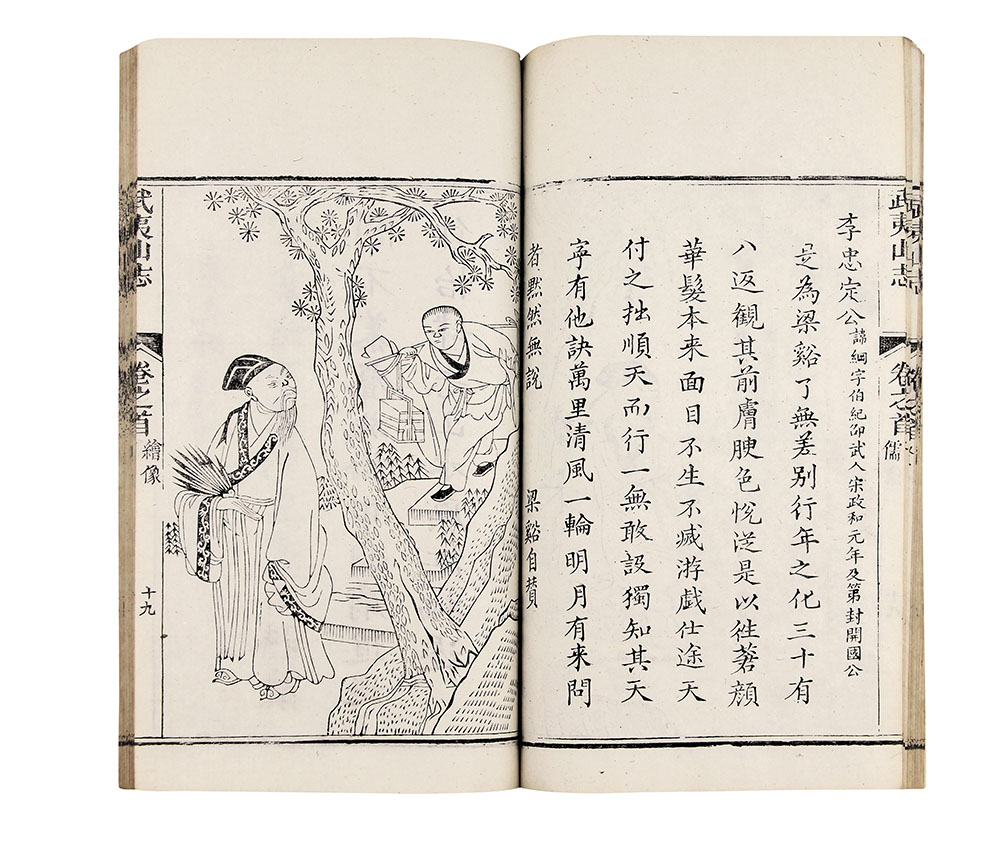 武夷山志 卷之首 儒
李忠定公 諱綱字伯紀邵武人宋政和元年及第封開國公
是為梁谿了無差別行年之化三十有
八返観其前膚腴色悅從是以徃蒼顏
華髮本来面目不生不滅游戲仕途天
付之拙順天而行一無敢設獨知其天
寧有他訣萬里清風一輪明月有来問
者黙然無說 梁谿自贊
武夷山志 卷之首 繪像 十九